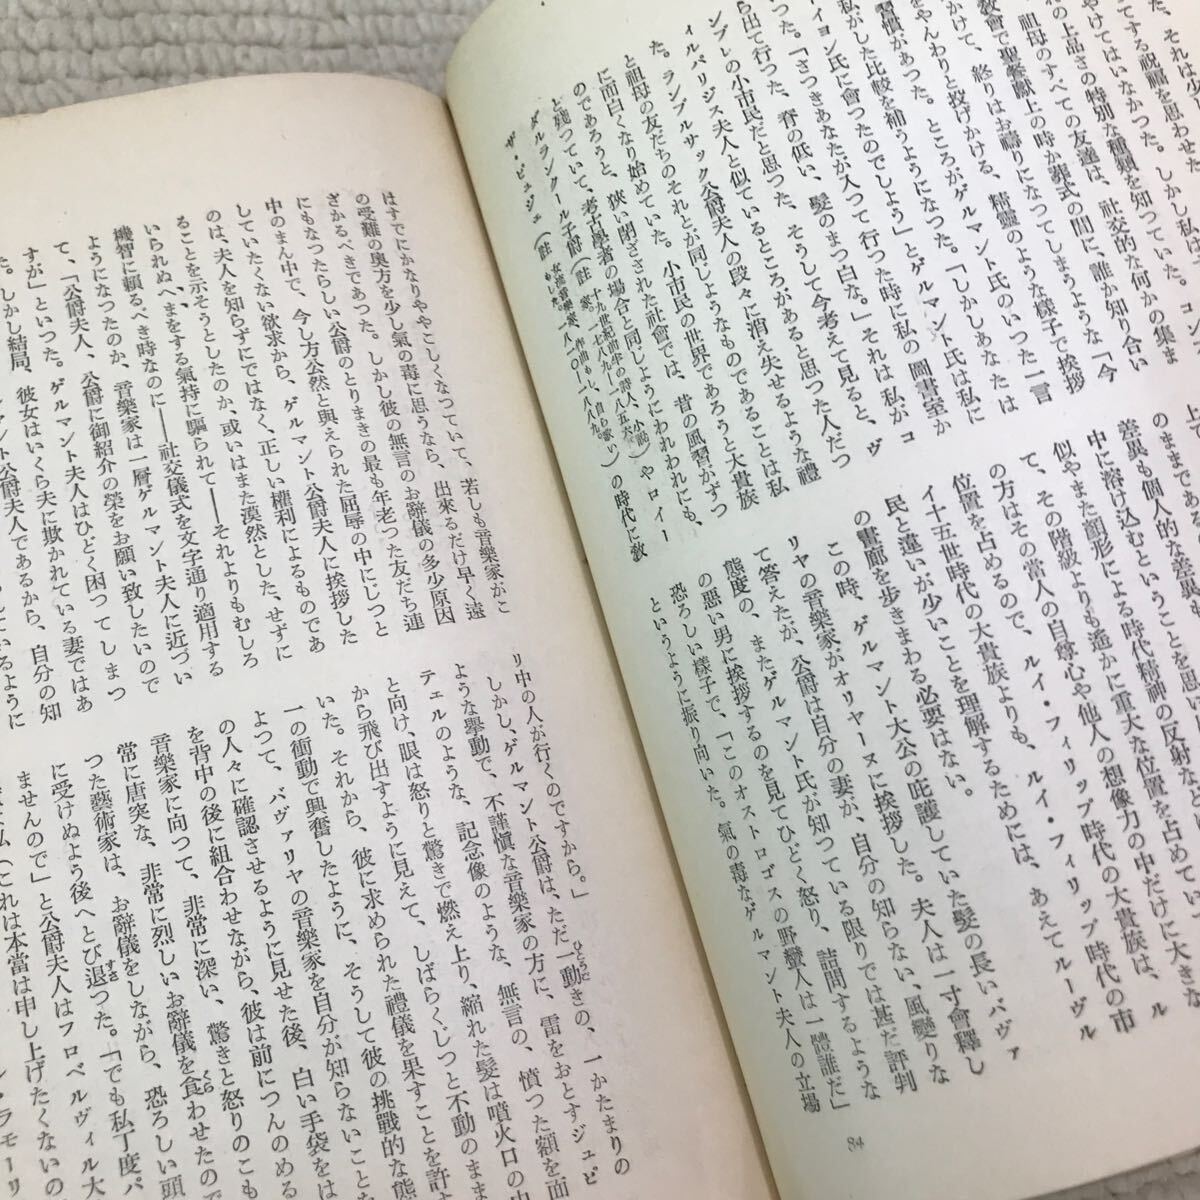 た。それは少
やけてはいなかつた。しかし私は
の上品さの特別な種類を知つていた。コン
祖母のすべての友達は、社交的な何かの集ま
教會で聖餐獻上の時か葬式の間に、誰か知り合い
をやんわりと投げかける、精靈のような樣子で挨拶
かけて、終りはお禱りになつてしまうような「今
習慣があつた。ところがゲルマント氏は私に
私がした比較を補うようになつた。「しかしあなたは
ーイヨン氏に會つたのでしよう」とゲルマント氏のいつた一言
つた。「さつきあなたが入つて行つた時に私の圖書室か
ら出て行つた、脊の低い、髮のまつ白な。」それは私がコ
ンブレの小市民だと思つた、そうして今考えて見ると、ヴ
ィルパリジス夫人と似ているところがあると思つた人だつ
た。ランブルサック公爵夫人の段々に消え失せるような禮
と祖母の友だちのそれとが同じようなものであることは私
に面白くなり始めていた。小市民の世界であろうと大貴族
のであろうと、狹い閉ざされた社會では、昔の風習がずつ
と殘つていて、考古學者の場合と同じようにわれわれにも、
ダルランクール子爵(註 十九世紀前半の詩人、小説家。一七八九―一八五六。)やロイー
ザ・ピュジェ(註 女流音樂家、作曲もし、自ら歌いもした。一八一〇―一八八九。)の時代に敎
上で
のままであ
差異も個人的な差異
中に溶け込むということを思い
似やまた顔形による時代精神の反射など
て、その階級よりも遙かに重大な位置を占めてい
の方はその當人の自尊心や他人の想像力の中だけに大きな
位置を占めるので、ルイ・フィリップ時代の大貴族は、ル
イ十五世時代の大貴族よりも、ルイ・フィリップ時代の市
民と違いが少いことを理解するためには、あえてルーヴル
の畫廊を歩きまわる必要はない。
この時、ゲルマント大公の庇護していた髮の長いバヴァ
リヤの音樂家がオリヤーヌに挨拶した。夫人は一寸會釋し
て答えたが、公爵は自分の妻が、自分の知らない、風變りな
態度の、またゲルマント氏が知つている限りでは甚だ評判
の惡い男に挨拶するのを見てひどく怒り、詰問するような
恐ろしい樣子で、「このオストロゴスの野蠻人は一體誰だ」
というように振り向いた。氣の毒なゲルマント夫人の立場
84
はすでにかなりややこしくなつていて、若しも音樂家がこ
の受難の奧方を少し氣の毒に思うなら、出來るだけ早く遠
ざかるべきであつた。しかし彼の無言のお辭儀の多少原因
にもなつたらしい公爵のとりまきの最も年老つた友だち連
中のまん中で、今し方公然と與えられた屈辱の中にじつと
していたくない欲求から、ゲルマント公爵夫人に挨拶した
のは、夫人を知らずにではなく、正しい權利によるものであ
ることを示そうとしたのか、或いはまた漠然とした、せずに
いられぬへまをする氣持に驅られて――それよりもむしろ
機智に賴るべき時なのに――社交儀式を文字通り適用する
ようになつたのか、音樂家は一層ゲルマント夫人に近づい
て、「公爵夫人、公爵に御紹介の榮をお願い致したいので
すが」といつた。ゲルマント夫人はひどく困つてしまつ
た。しかし結局、彼女はいくら夫に欺かれている妻ではあ
公爵夫人であるから、自分の知
いるように
リ中の人が行くのですから。」
しかし、ゲルマント公爵は、ただ一動きの、一かたまりの
ような擧動で、不謹愼な音樂家の方に、雷をおとすジュピ
テェルのような、記念像のような、無言の、憤つた額を面
と向け、眼は怒りと驚きで燃え上り、縮れた髮は噴火口の中
から飛び出すように見えて、しばらくじつと不動のまま
いた。それから、彼に求められた禮儀を果すことを許す
一の衝動で興奮したように、そうして彼の挑戰的な態
よつて、バヴァリヤの音樂家を自分が知らないことを
の人々に確認させるように見せた後、白い手袋をは
を背中の後に組合わせながら、彼は前につんのめる
音樂家に向つて、非常に深い、驚きと怒りのこも
常に唐突な、非常に烈しいお辭儀を食わせたので
つた藝術家は、お辭儀をしながら、恐ろしい頭
に受けぬよう後へとび退つた。「でも私丁度パ
ませんので」と公爵夫人はフロベルヴィル大
(これは本當は申し上げたくないの
ラモーリ